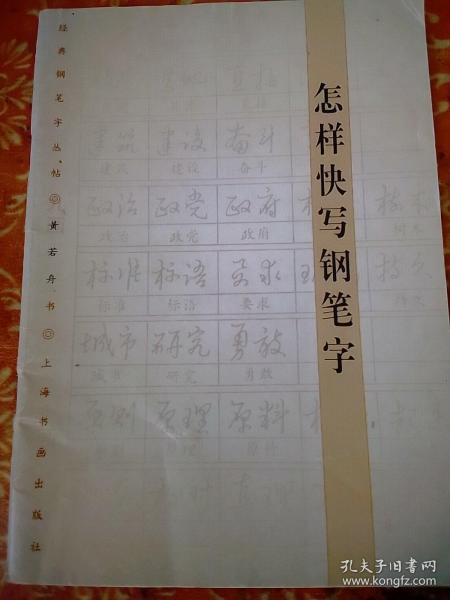 怎样快写钢笔字
经典钢笔字丛帖◎黄若舟书◎上海书画出版社
建筑 建设 奋斗
建筑 建设 奋斗
政治 政党 政府
政治 政党 政府
标准 标语 要求
标准 标语 要求
城市 研究 勇敢
城市 研究 勇敢
原则 原理 原料
原则 原理 原料
孔夫子旧书网
www.kongfz.com